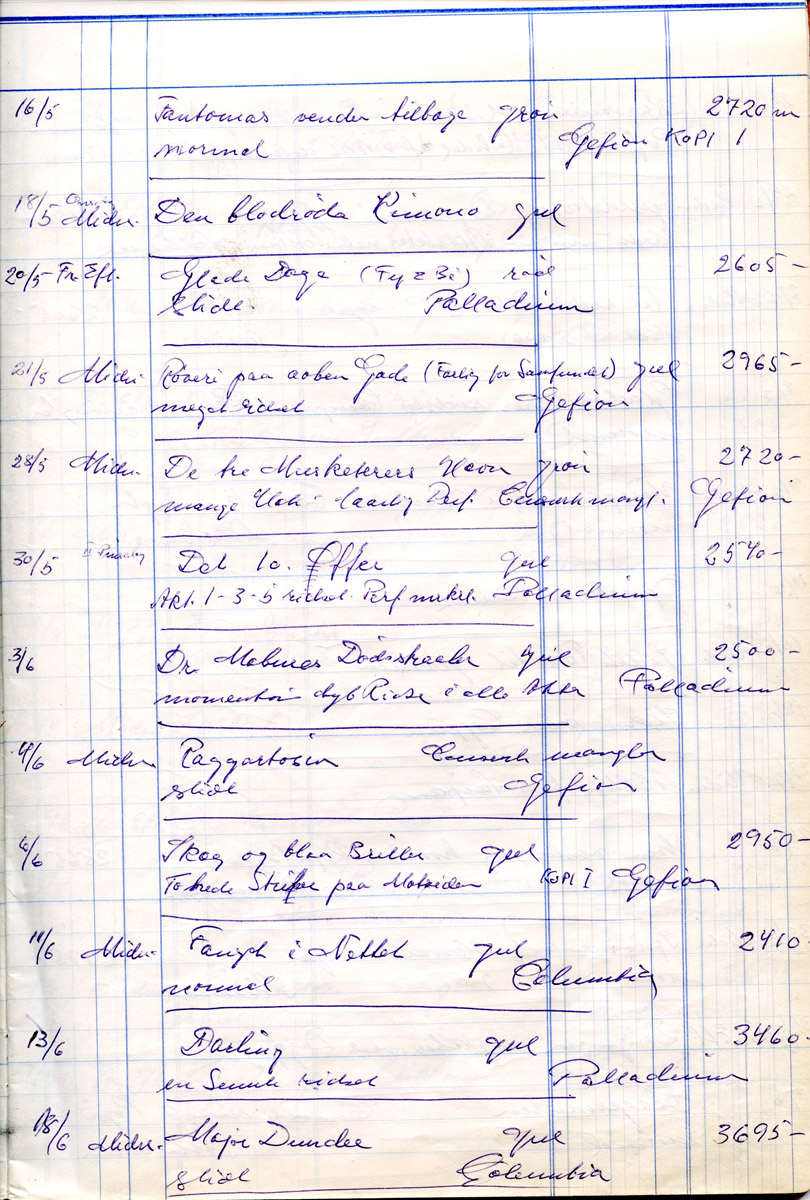 16/5 Fantomas vender tilbage grøn 2720 m
normal Gefion KOPI 1
18/5 Midn. Den blodröda Kimono gul
20/5 Fm Eft. Glade Dage (Fy & Bi) rød 2605-
slidt. Palladium
21/5 Midn. Røveri paa aaben Gade (Farlig for Samfundet) gul 2965-
meget ridset Gefion
28/5 Midn. De tre Musketerers Hævn grøn 2720-
mange Hak daarlig Perf. Censurk mangl. Gefion
30/5 Det 10. Offer gul 2540-
Akt. 1-3-5 ridset. Perf Palladium
3/6 Dr. Mabuses Dödsstraaler gul 2500-
i alle Akter Palladium
4/6 Midn. Raggartösen Censurk mangler
slidt Gefion
6/6 Skæg og blaa Briller gul 2950-
To brede Striber paa KOPI I Gefion
11/6 Midn. Fanget i Nettet gul 2410-
normal Columbia
13/6 Darling gul 3460-
en Smule ridset Palladium
18/6 Midn. Major Dundee gul 3695-
slidt Columbia